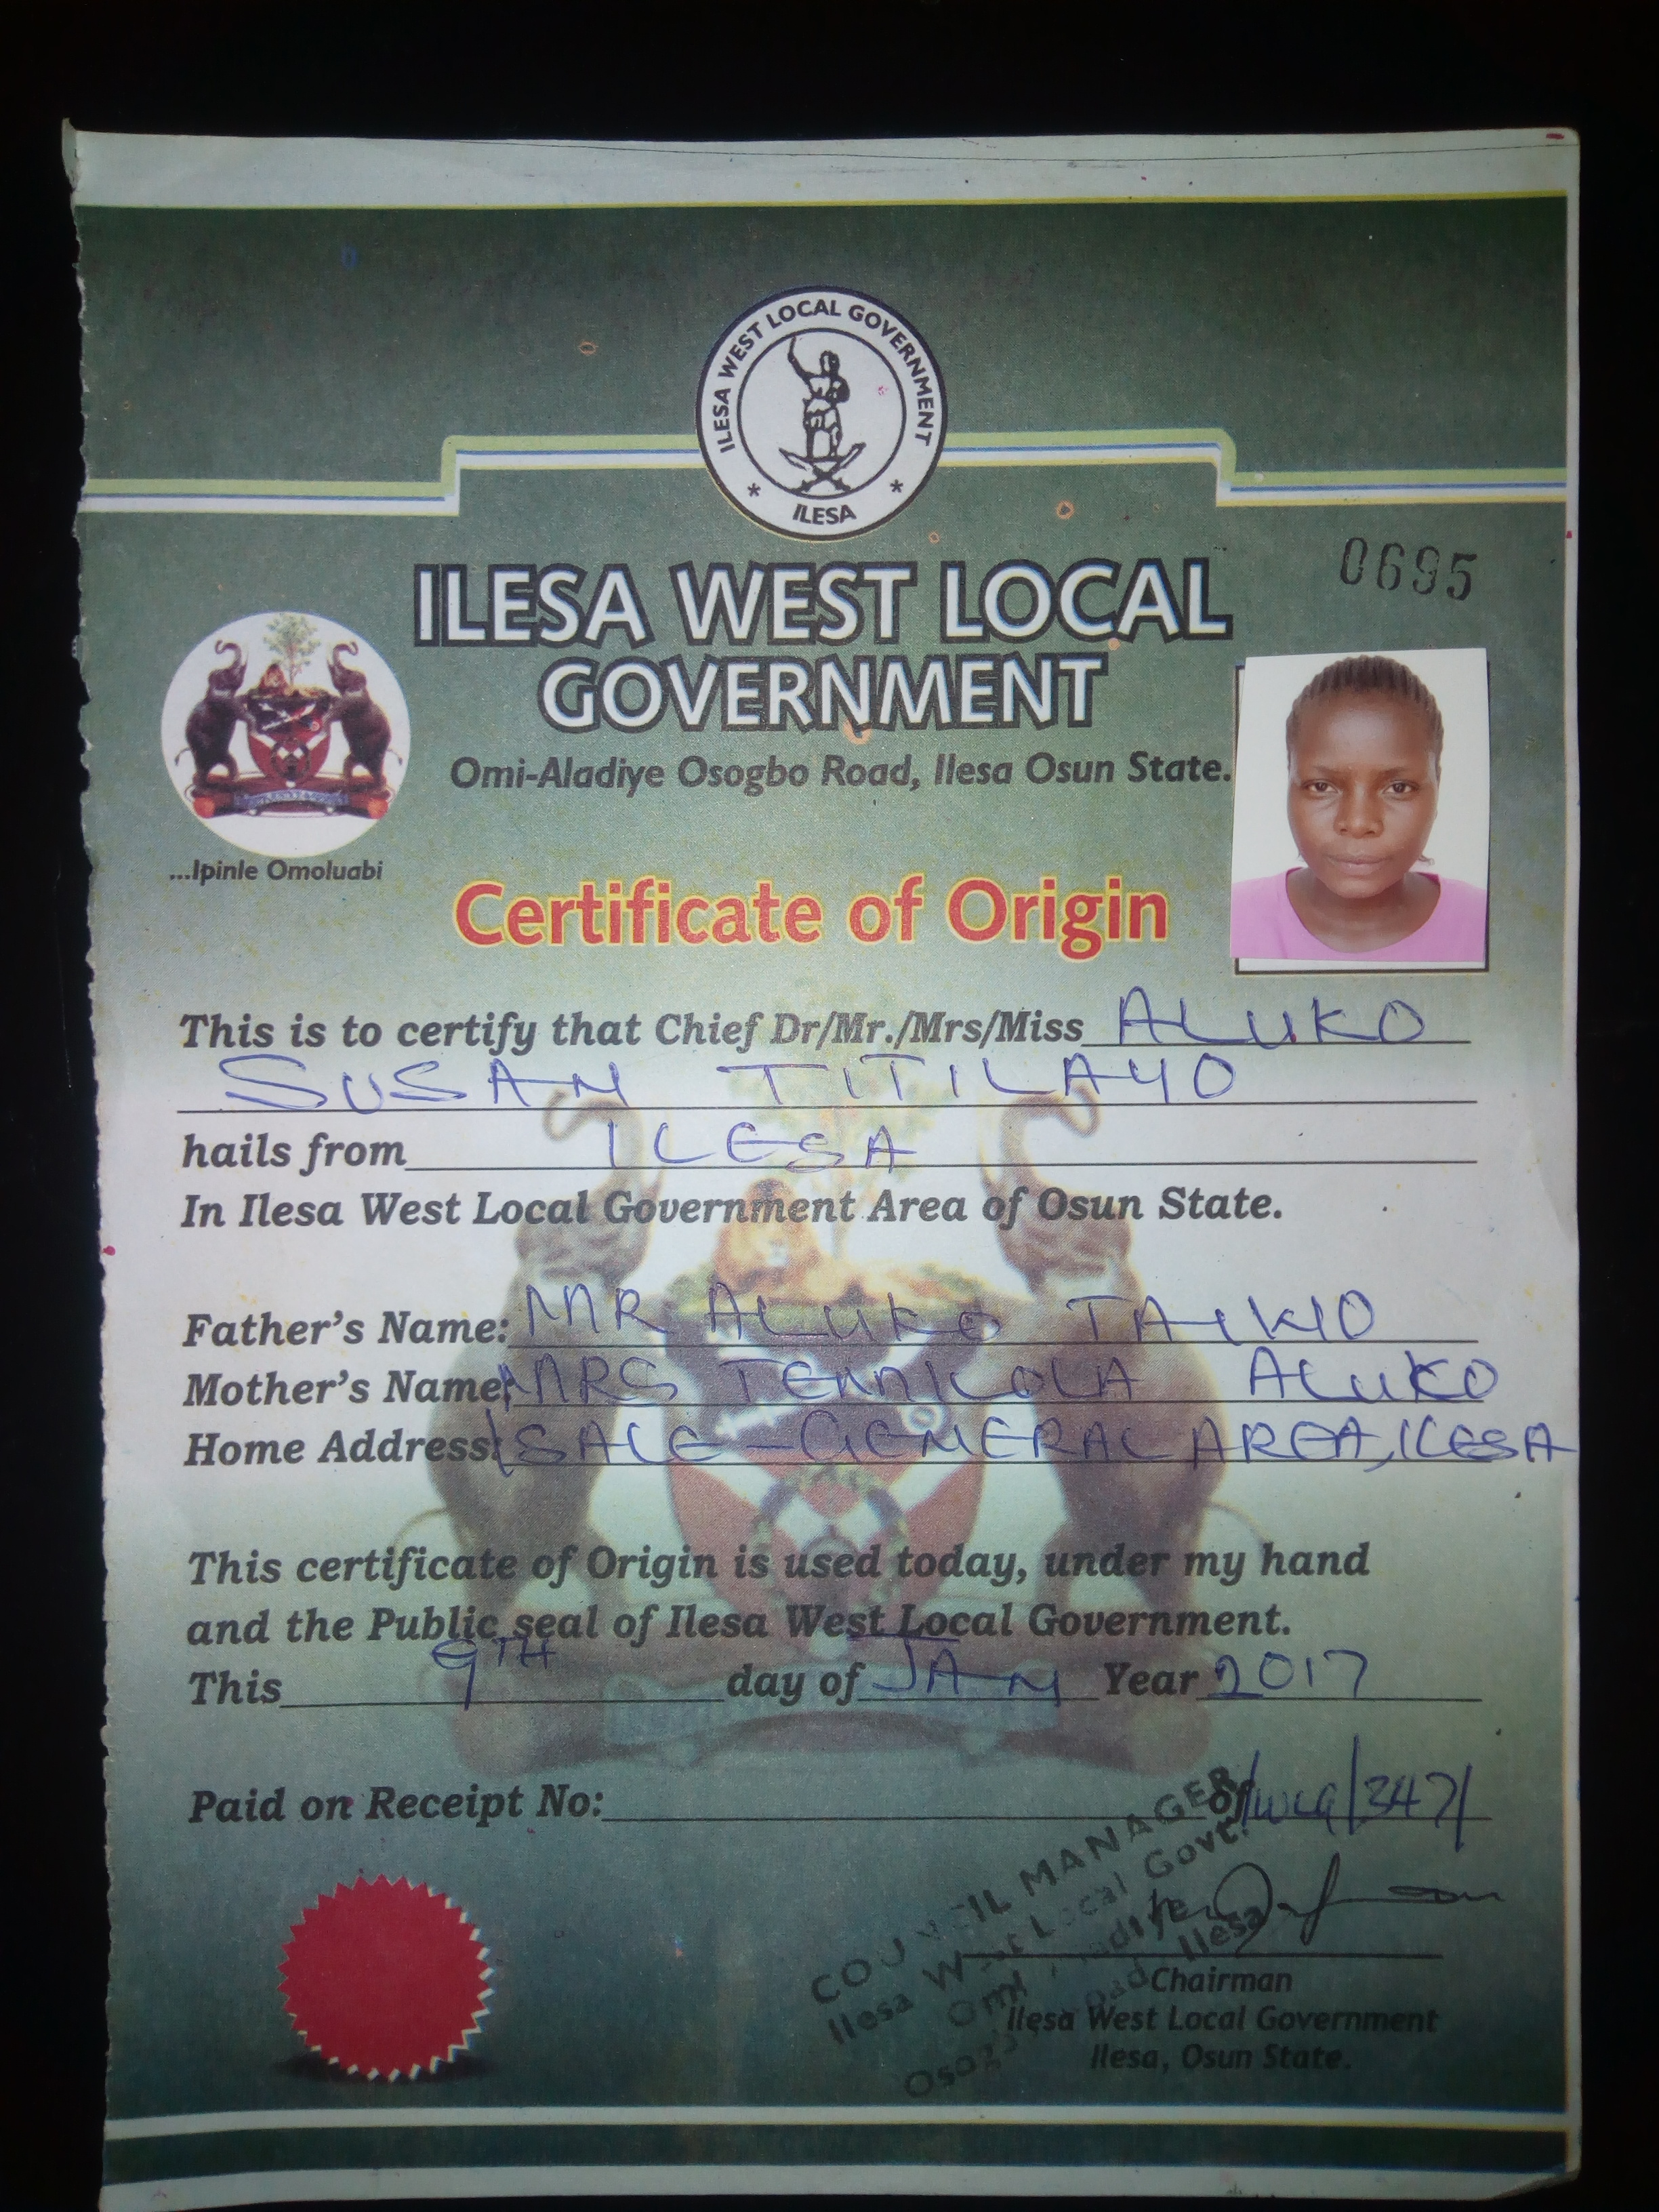 ILESA WEST LOCAL GOVERNMENT
* ILESA *
0695
ILESA WEST LOCAL
GOVERNMENT
Omi-Aladiye Osogbo Road, Ilesa Osun State.
...Ipinle Omoluabi
Certificate of Origin
This is to certify that Chief Dr/Mr./Mrs/Miss ALUKO
SUSAN TITILAYO
hails from ILESA
In Ilesa West Local Government Area of Osun State.
Father's Name: MR ALUKO TAIWO
Mother's Name: MRS ALUKO
Home Address: ISALE-GENERAL AREA, ILESA
This certificate of Origin is used today, under my hand
and the Public seal of Ilesa West Local Government.
This 9TH day of JAN Year 2017
Paid on Receipt No: 347/
COUNCIL MANAGER
Ilesa West Local Govt.
Omi Aladiye
Osogbo Road Ilesa
Chairman
Ilesa West Local Government
Ilesa, Osun State.